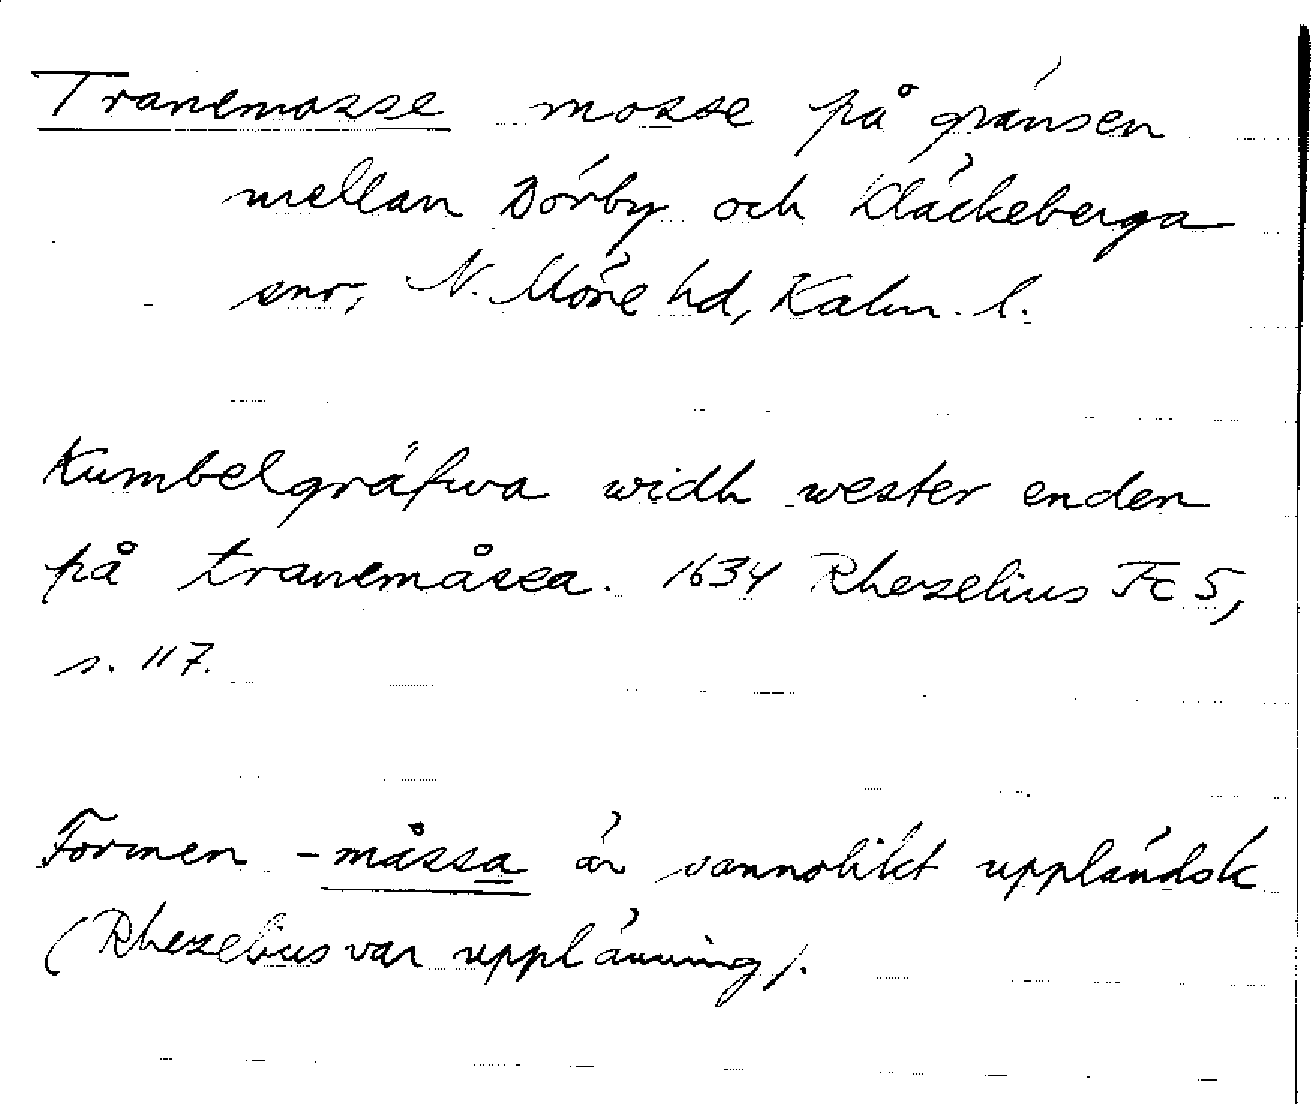 Tranemosse mosse på gränsen
mellan Dörby och Kläckeberga
snr, N. Möre hd, Kalm. l.
Kumbelgräfwa widh wester enden
på tranemåssa. 1634 Rhezelius Fc 5,
s. 117.
Formen -måssa är sannolikt uppländsk
(Rhezelius var upplänning).